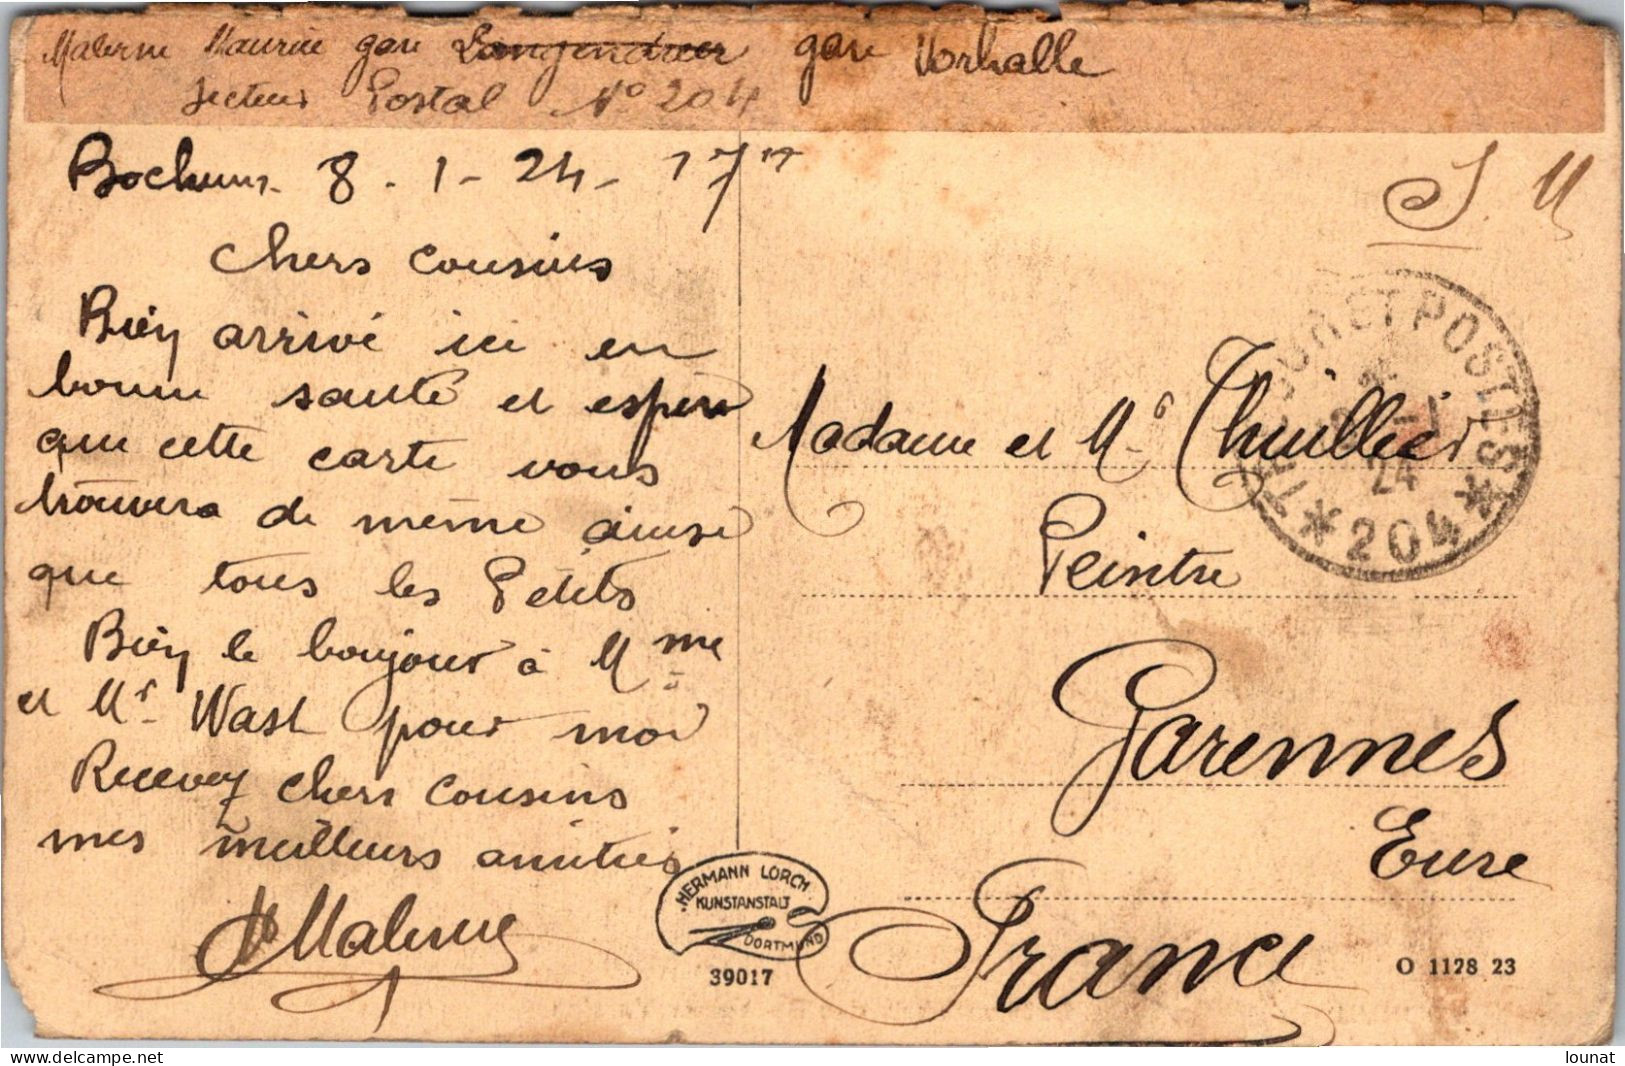 Malerne Maurice gare Langendreer gare Vorhalle
Secteur Postal N° 204
Bochum. 8 - 1 - 24 - 17
Chers Cousins
Bien arrivé ici en
bonne santé et espère
que cette carte vous
trouvera de même ainsi
que tous les Petits
Bien le bonjour à Mme
et Mr Wast pour moi
Recevez chers Cousins
mes meilleurs amitiés
Malerne
F. M
Madame et Mr Thuillier
Peintre
Garennes
Eure
France
TRESOR ET POSTES
24
* 204 *
HERMANN LORCH
KUNSTANSTALT
DORTMUND
39017
O 1128 23
www.delcampe.net
lounat